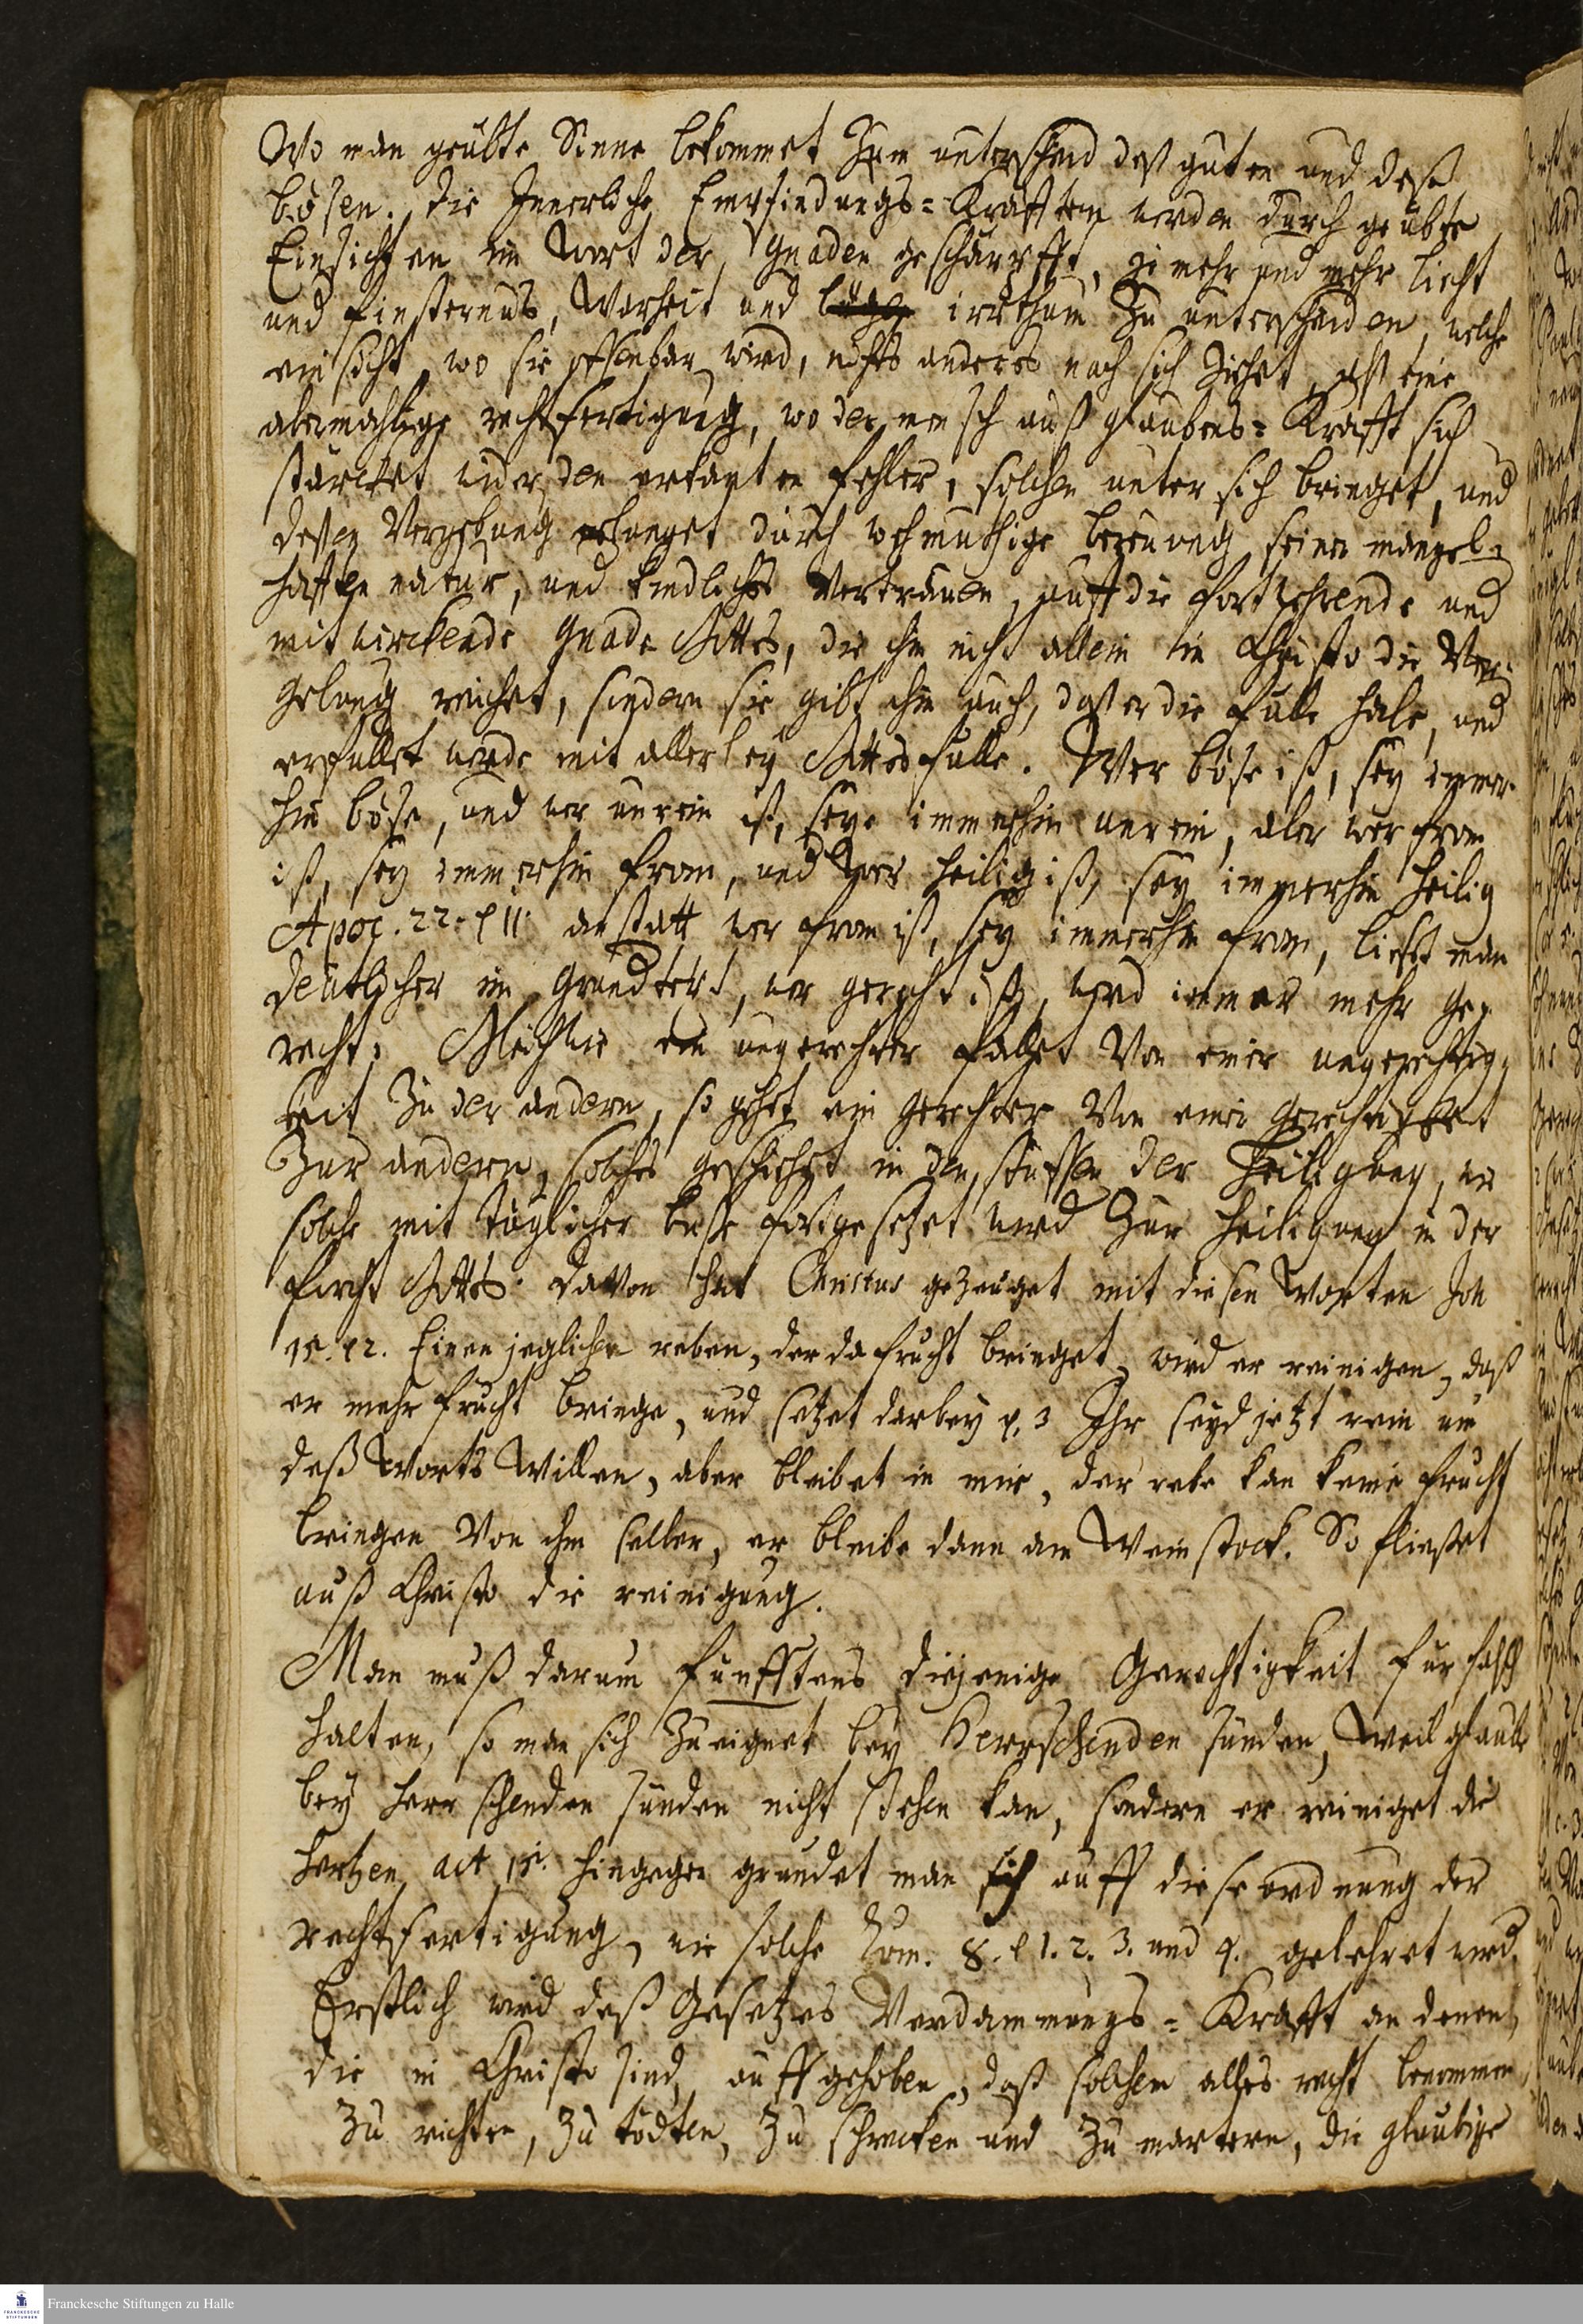 Wo man geübte Sinne bekommet zum unterscheid deß guten und deß
bösen. die Innerliche Empfindungs-Krafften werden durch geübte
Einsichten im Wort der Gnaden geschärpfft, je mehr und mehr liecht
und finsternus, Warheit und lüge irrthum zu unterscheiden, welche
einsicht, wo sie offenbar wird, nichts anderes nach sich ziehet, alß eine
abermahlige rechtfertigung, wo der mensch auß glaubens-Krafft sich
stärcket wider den erkanten fehler, solchen unter sich bringet, und
deßen Vergebung erlanget durch wehmüthige bereuung seiner mangel-
hafften natur, und kindliches Vertrauen, auff die fortgehende und
mitwirckende Gnade Gottes, die ihm nicht allein in Christo die Ver-
gebung reichet, sondern sie gibt ihm auch, daß er die fülle habe, und
erfüllet werde mit allerley Gottes fülle. Wer böse ist, sey immer-
hin böse, und wer unrein ist, seye immerhin unrein, aber wer from
ist, sey immerhin from, und wer heilig ist, sey immerhin heilig
Apoc. 22. v 11. anstatt wer from ist, sey immerhin from, ließt man
deutlicher im Grundtext, wer gerecht ist, werd immer mehr ge-
recht; Gleichwie ein ungerechter fallet Von einer ungerechtig-
keit zu der andern, so gehet ein gerechter Von einer Gerechtigkeit
zur andern, solches geschiehet in den stuffen der Heiligung, wo
solche mit täglicher buße fortgesetzet wird zur heiligung in der
forcht Gottes. davon hat Christus gezeuget mit diesen Worten Joh
15. v 2. Einen jeglichen reben, der da frucht bringet, wird er reinigen, daß
er mehr frucht bringe, und setzet darbey v. 3 Ihr seyd jetzt rein um
deß Worts Willen, aber bleibet in mir, der rebe kan keine frucht
bringen Von ihm selber, er bleibe dann am Weinstock. So fließet
auß Christo die reinigung.
Man muß darum fünfftens diejenige Gerechtigkeit für falsch
halten, so man sich zueignet bey Herrschenden sünden, Weil glaube
bey herrschenden sünden nicht stehen kan, sondern er reiniget die
hertzen, act 15. hingegen gründet man sich auff diese ordnung der
rechtfertigung, wie solche Rom. 8. v 1. 2. 3. und 4. gelehret wird.
Erstlich wird deß Gesetzes Verdammungs-Krafft an denen,
die in Christo sind, auffgehoben, daß solchem alles recht benommen,
zu richten, zu tödten, zu schrecken und zu martern, die glaubige
Franckesche Stiftungen zu Halle